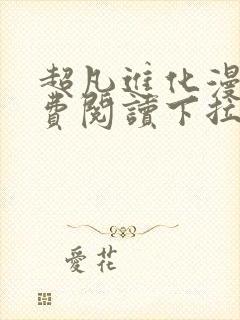 超凡進化漫
費閱讀下拉
愛花